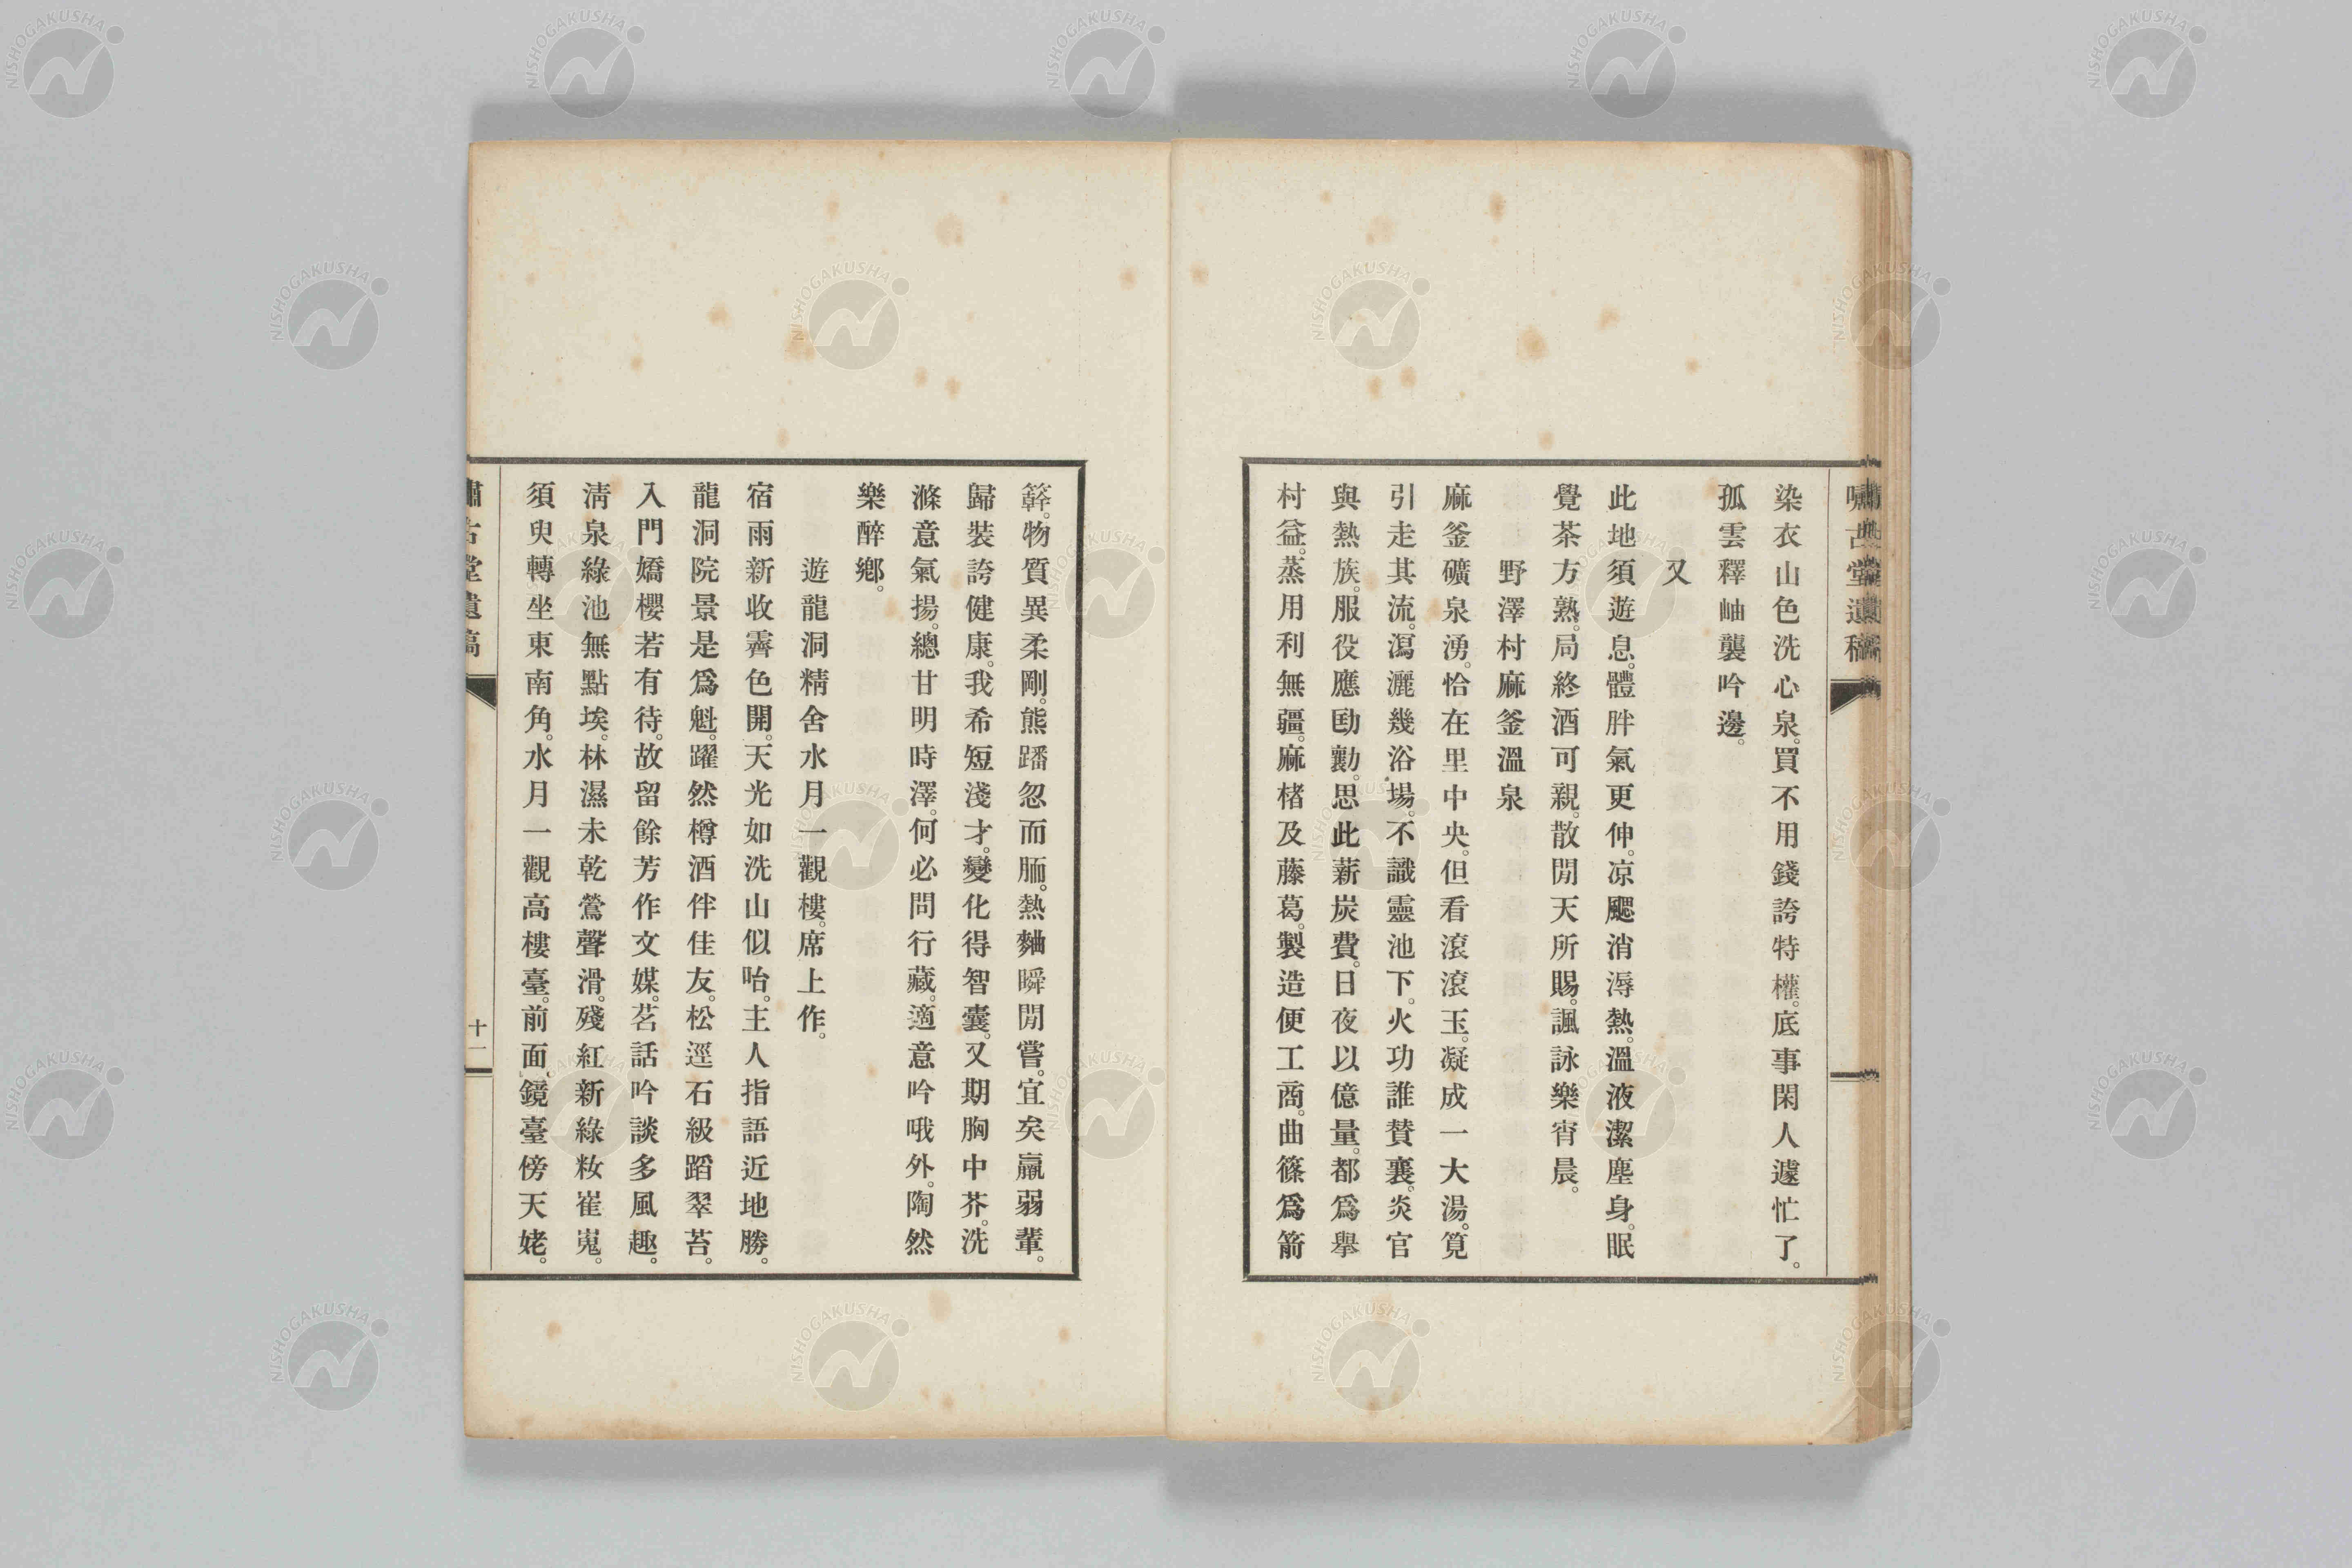 嘯古堂遺稿
染衣山色洗心泉。買不用錢誇特權。底事閑人遽忙了。
孤雲釋岫襲吟邊。
又
此地須遊息。體胖氣更伸。凉颸消溽熱。溫液潔塵身。眠
覺茶方熟。局終酒可親。散閒天所賜。諷詠樂宵晨。
野澤村麻釜溫泉
麻釜礦泉湧。恰在里中央。但看滾滾玉。凝成一大湯。筧
引走其流。瀉灑幾浴場。不識靈池下。火功誰賛襄。炎官
與熱族。服役應劻勷。思此薪炭費。日夜以億量。都爲擧
村益。蒸用利無疆。麻楮及藤葛。製造便工商。曲篠爲箭
簳。物質異柔剛。熊蹯忽而胹。熱麯瞬閒嘗。宜矣羸弱輩。
歸裝誇健康。我希短淺才。變化得智囊。又期胸中芥。洗
滌意氣揚。總甘明時澤。何必問行藏。適意吟哦外。陶然
樂醉鄕。
遊龍洞精舍水月一觀樓。席上作。
宿雨新收霽色開。天光如洗山似咍。主人指語近地勝。
龍洞院景是爲魁。躍然樽酒伴佳友。松逕石級蹈翠苔。
入門嬌櫻若有待。故留餘芳作文媒。茗話吟談多風趣。
淸泉綠池無點埃。林濕未乾鶯聲滑。殘紅新綠籹崔嵬。
須臾轉坐東南角。水月一觀高樓臺。前面鏡臺傍天姥。
嘯古堂遺稿
十一